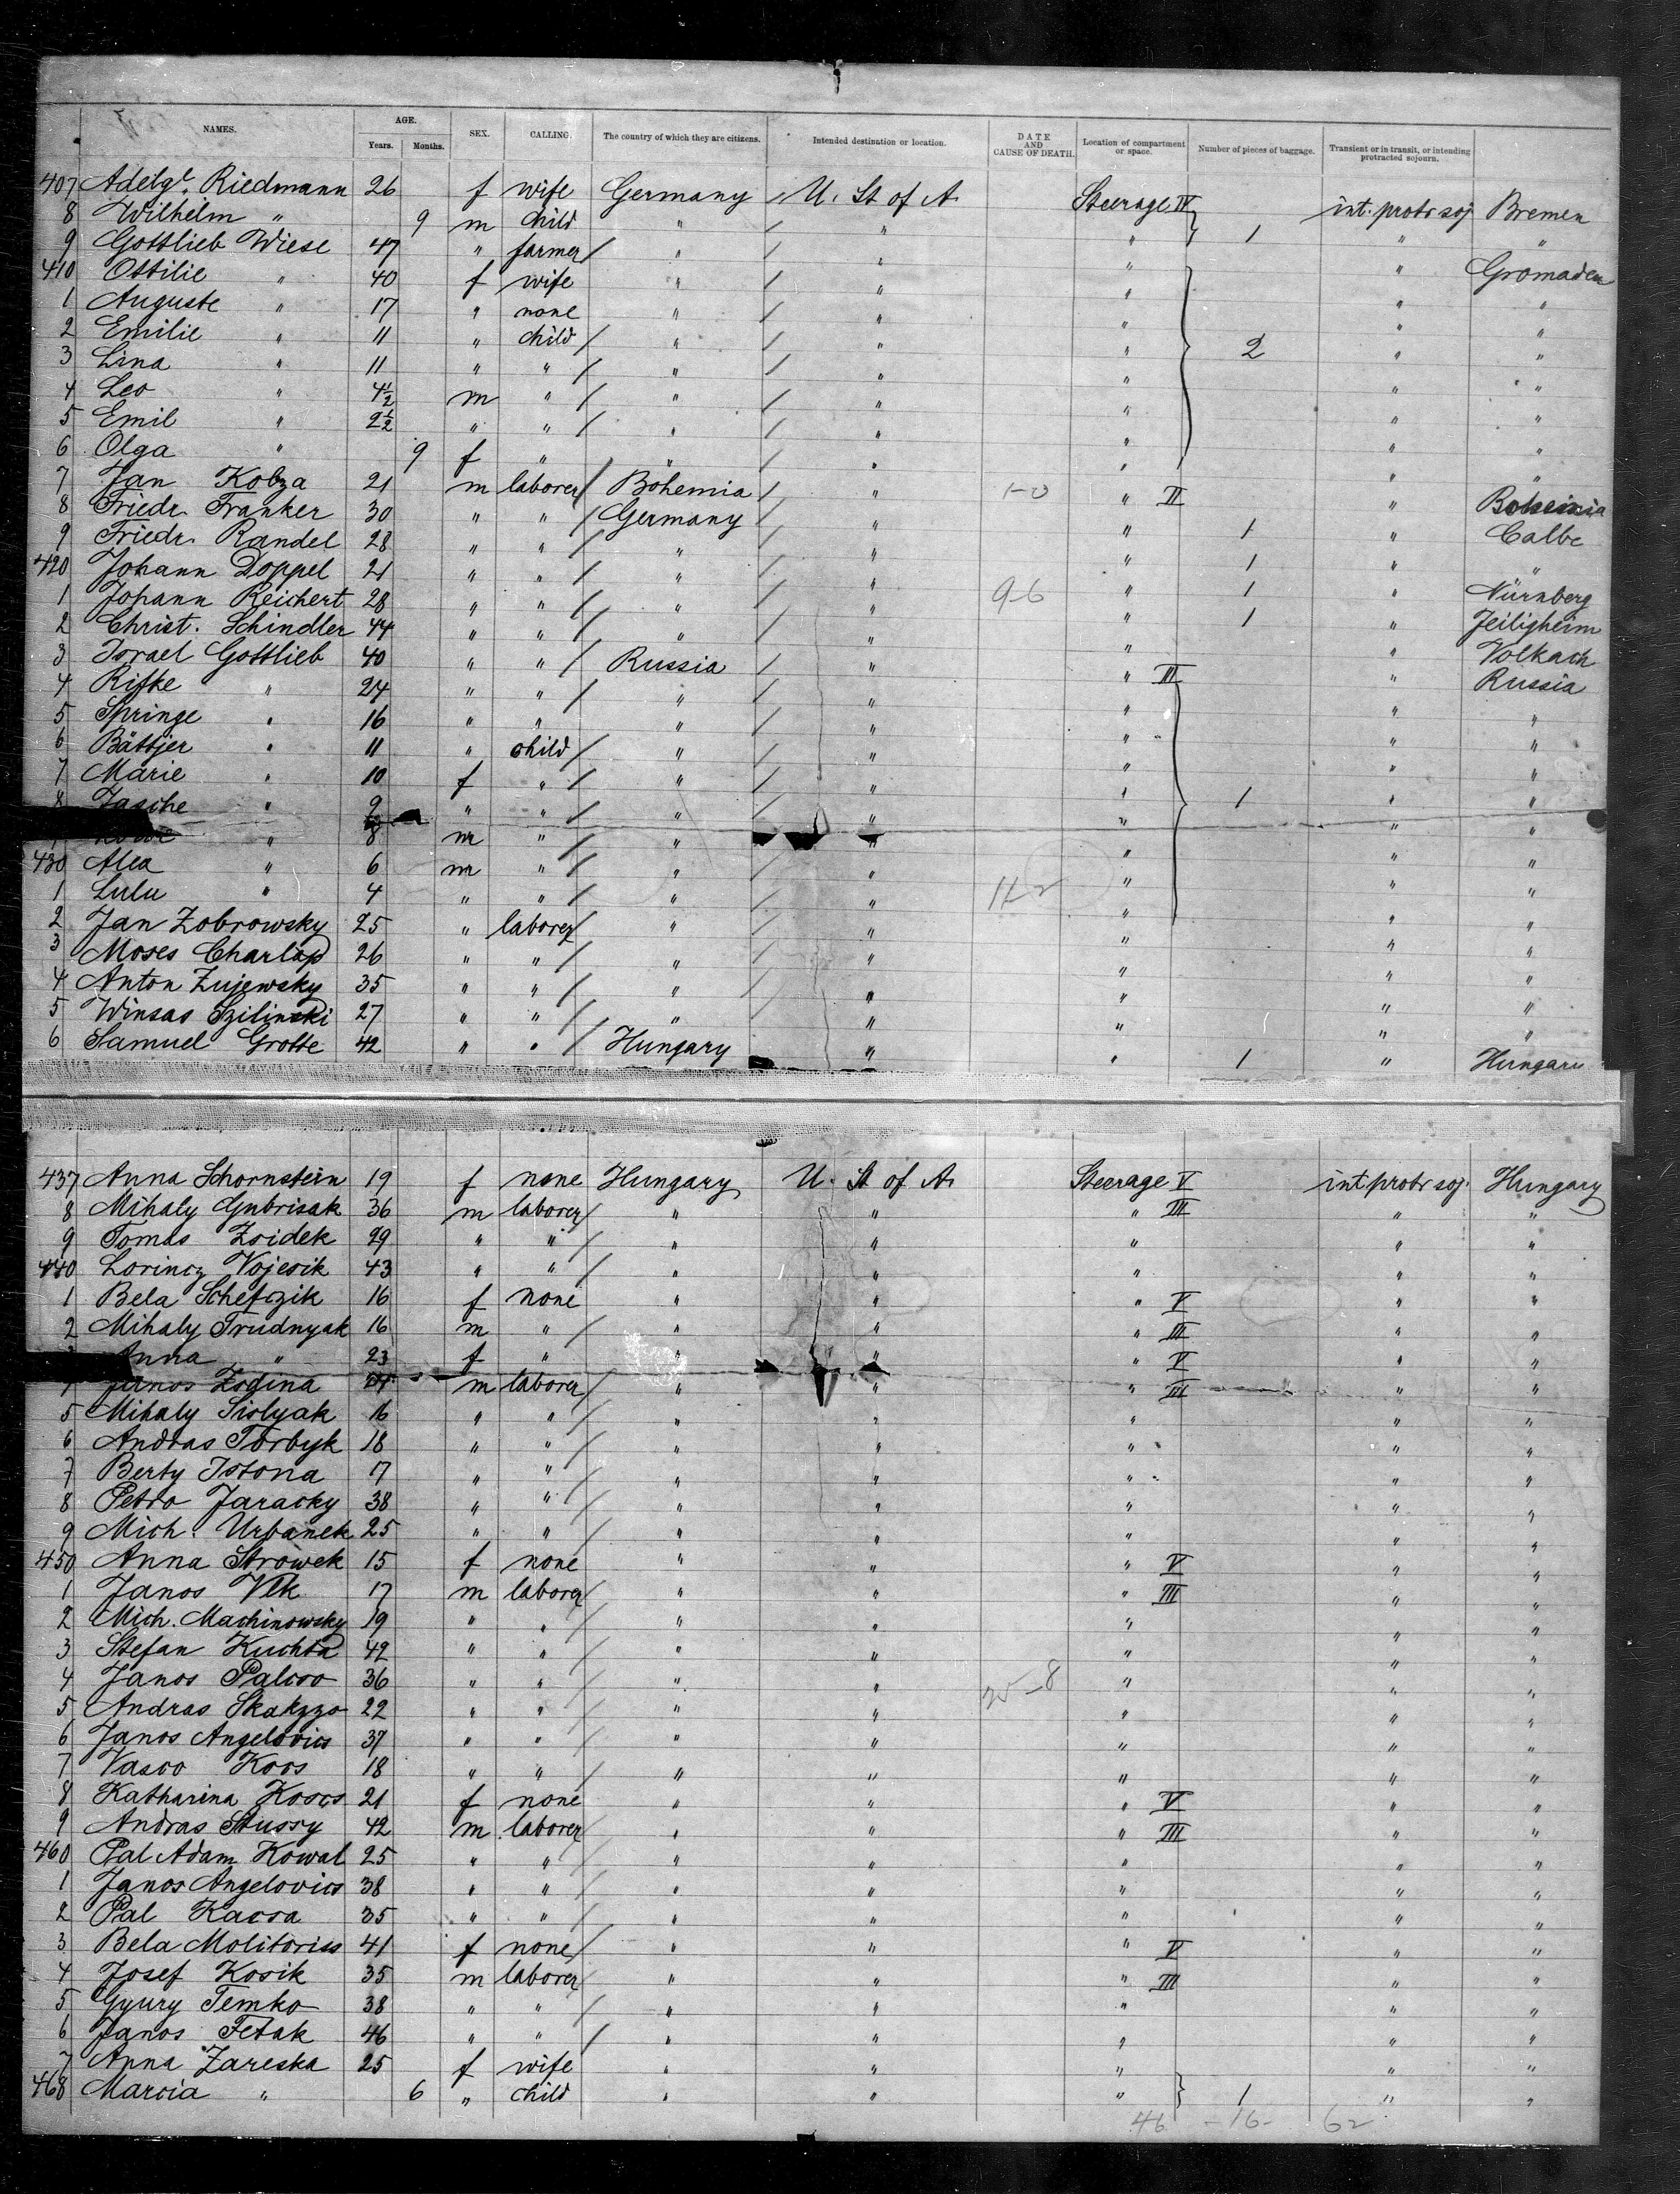 NAMES. AGE. Years. Months. SEX. CALLING. The country of which they are citizens. Intended destination or location. DATE AND CAUSE OF DEATH. Location of compartment or space. Number of pieces of baggage. Transient or in transit, or intending protracted sojourn.
407 Riedmann 26 f wife Germany U. St of A. Steerage IV int. protr soj Bremen
8 Wilhelm " 9 m child " " " } 1 " "
9 Gottlieb Wiese 47 " farmer " " " " Gromaden
410 Ottilie " 40 f wife " " " " "
1 Auguste " 17 " none " " " " "
2 Emilie " 11 " child " " " 2 " "
3 Lina " 11 " " " " " " "
4 Leo " 4½ m " " " " " "
5 Emil " 2½ " " " " " " "
6 Olga " 9 f " " " " " "
7 Jan Kobza 21 m laborer Bohemia " 1-0 " II " Bohemia
8 Friedr. Franker 30 " " Germany " " 1 " Calbe
9 Friedr. Randel 28 " " " " " 1 " "
420 Johann Doppel 21 " " " " " 1 " Nürnberg
1 Johann Reichert 28 " " " " 9-6 " 1 "
2 Christ. Schindler 44 " " " " " " Volkach
3 Israel Gottlieb 40 " " Russia " " III " Russia
4 Rifke " 24 " " " " " " "
5 Springe " 16 " " " " " " "
6 Bättjer " 11 " child " " " " "
7 Marie " 10 f " " " " 1 " "
8 Jasche " 9 " " " " " " "
" 8 m " " " " " "
430 Alea " 6 m " " " " " "
1 Lulu " 4 " " " " 11-2 " " "
2 Jan Zobrowsky 25 " laborer " " " " "
3 Moses Charlap 26 " " " " " " "
4 Anton Zujewsky 35 " " " " " " "
5 Winsas Szilinski 27 " " " " " 1 " "
6 Samuel Grotte 42 " " Hungary " " 1 " Hungary
437 Anna Schornstein 19 f none Hungary U. St of A. Steerage V int. protr soj. Hungary
8 Mihaly Gubrisak 36 m laborer " " " III " "
9 Tomas Zsidek 29 " " " " " " "
440 Lorincz Vojesik 43 " " " " " " "
1 Bela Schefczik 16 f none " " " V " "
2 Mihaly Trudnyak 16 m " " " " III " "
Anna " 23 f " " " " V " "
Janos Zsdina 24 m laborer " " " III " "
5 Mihaly Sislyak 16 " " " " " " "
6 Andras Torbyk 18 " " " " " " "
7 Berty Istona 17 " " " " " " "
8 Petro Jaracky 38 " " " " " " "
9 Mich. Urbanek 25 " " " " " " "
450 Anna Strowek 15 f none " " " V " "
1 Janos Vlk 17 m laborer " " " III " "
2 Mich. Machinowsky 19 " " " " " " "
3 Stefan Kuchta 42 " " " " " " "
4 Janos Palcso 36 " " " " " " "
5 Andras Skakzzo 22 " " " " " " "
6 Janos Angelovics 37 " " " " " " "
7 Vasco Koos 18 " " " " " " "
8 Katharina Koscs 21 f none " " " V " "
9 Andras Stussy 42 m laborer " " " III " "
460 Pal Adam Kowal 25 " " " " " " "
1 Janos Angelovics 38 " " " " " " "
2 Pal Kacsa 35 " " " " " " "
3 Bela Molitoriss 41 f none " " " V " "
4 Josef Kosik 35 m laborer " " " III " "
5 Gyury Temko 38 " " " " " " "
6 Janos Fetak 46 " " " " " " "
7 Anna Zareska 25 f wife " " " " "
468 Marcia " 6 " child " " " } 1 " "
46 - 16 - 62